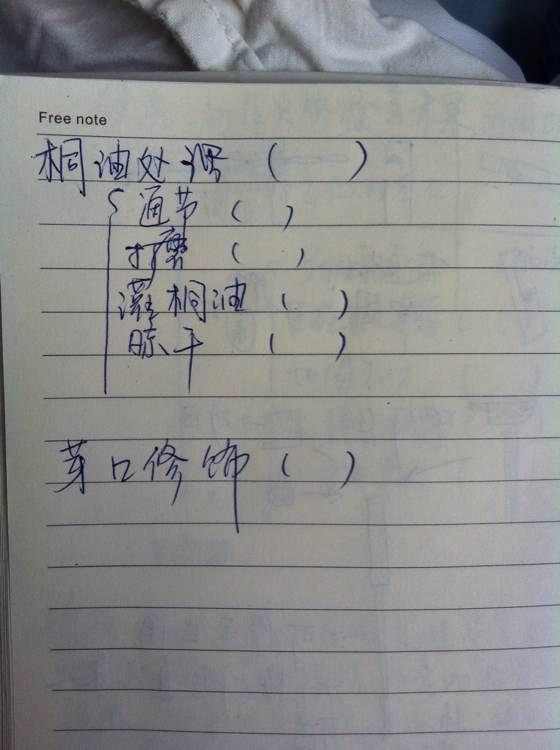 Free note
桐油处理（ ）
通节（ ）
打磨（ ）
灌桐油（ ）
晾干（ ）
芽口修饰（ ）